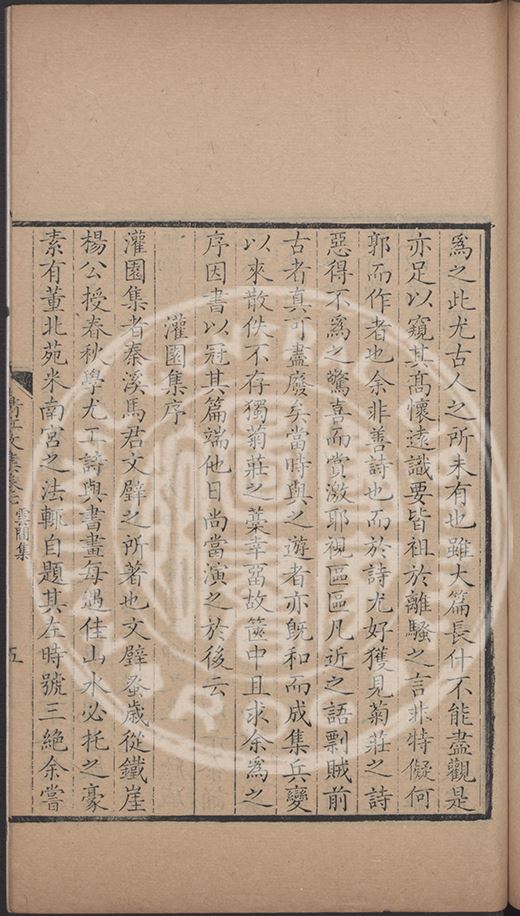 爲之此尤古人之所未有也雖大篇長什不能盡觀是
亦足以窺其高懷遠識要皆祖於離騷之言非特儗何
郭而作者也余非善詩也而於詩尤好獲見菊莊之詩
惡得不爲之驚喜而賞激耶視區區凡近之語剽賊前
古者真可盡廢矣當時與之遊者亦旣和而成集兵變
以來散佚不存獨菊莊之藁幸畱故篋中且求余爲之
序因書以冠其篇端他日尚當演之於後云
灌園集序
灌園集者秦溪馬君文璧之所著也文璧蚤歲從鐵崖
楊公授春秋學尤工詩與書畫每遇佳山水必托之豪
素有董北苑米南宮之法輒自題其左時號三絶余嘗
清江文集卷七 雲間集 五